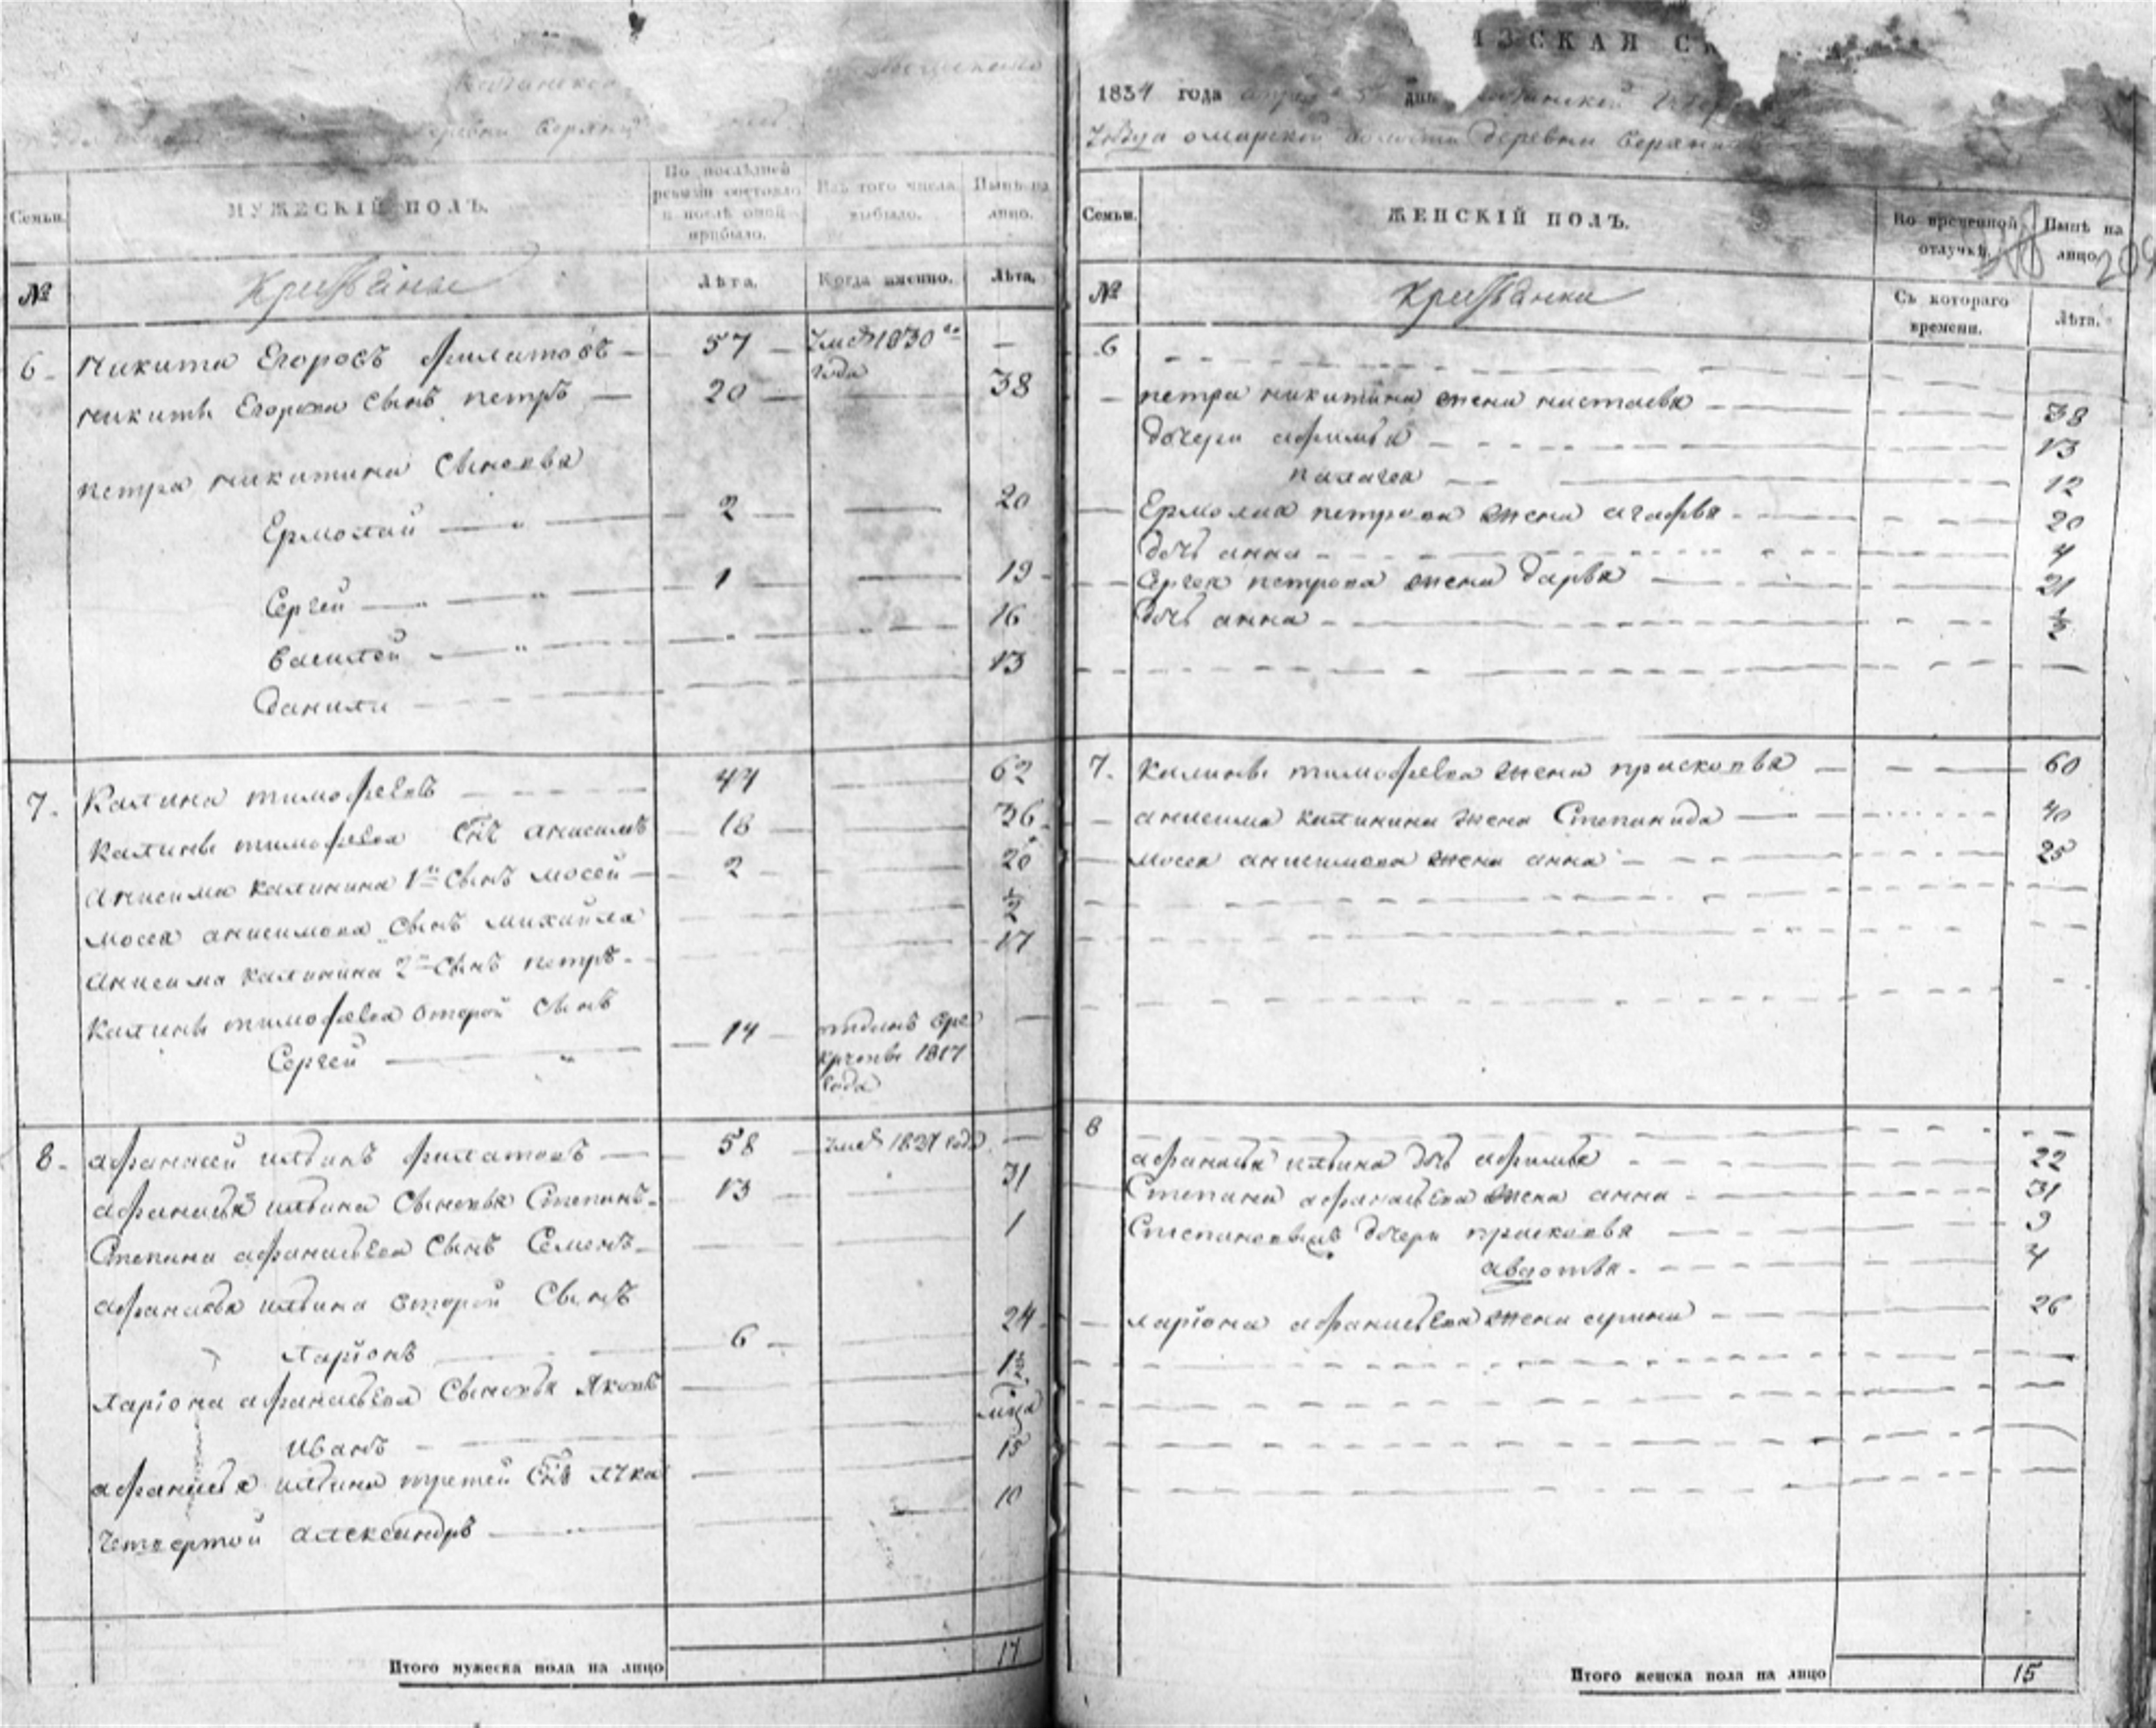 Казанско
деревни Верхни
Семьи.
МУЖЕСКІЙ ПОЛЪ.
По послѣдней ревизіи состояло и послѣ оной прибыло.
Изъ того числа выбыло.
Нынѣ на лицо.
№
Крестьяне
Лѣта.
Когда именно.
Лѣта.
6. Никита Егоровъ Филатовъ — 57 — умеръ 1830го —
года
Никиты Егорова сынъ Петръ — 20 — 38
Петра Никитина сыновья
Ермолай — 2 — 20
Сергей — 1 — 19
Василей — 16
Данили — 13
7. Калина Тимофеевъ 44 — 62
Калины Тимофеева снъ Анисимъ 18 — 36
Анисима Калинина 1й сынъ Мосей — 2 — 20
Мосея Анисимова сынъ Михайла ½
Анисима Калинина 2й сынъ Петръ — 17
Калины Тимофеева второй сынъ
Сергей — 14 — отданъ вре —
круты 1817
года
8. Афанасей Ильинъ Филатовъ — 58 умеръ 1821 года —
Афанасья Ильина сыновья Степанъ 13 31
Степана Афанасьева сынъ Семенъ 1
Афанасья Ильина второй сынъ
Ларіонъ 6 — 24
Ларіона Афанасьева сыновья Яковъ
Иванъ
Афанасья Ильина третей снъ Лука 15
Четвертой Александръ — 10
Итого мужеска пола на лицо 17
ІЗСКАЯ С
1834 года дня
Уѣзда Омарской волости деревни Верхни
Семьи.
ЖЕНСКІЙ ПОЛЪ.
Во временной отлучкѣ.
Нынѣ на лицо.
204
№
Крестьянки
Съ котораго времени.
Лѣта.
6
Петра Никитина жена Настасья 38
дочери Афимья 13
Палагея 12
Ермолая Петрова жена Агафья 20
дочь Анна 4
Сергея Петрова жена Дарья 21
дочь Анна ½
7. Калины Тимофеева жена Прасковья 60
Анисима Калинина жена Степанида 40
Мосея Анисимова жена Анна 25
8
Афанасья Ильина дочь Афимья 22
Степана Афанасьева жена Анна 31
Степановы дочери Прасковья 9
Авдотья 4
Ларіона Афанасьева жена Арина 26
Итого женска пола на лицо 15